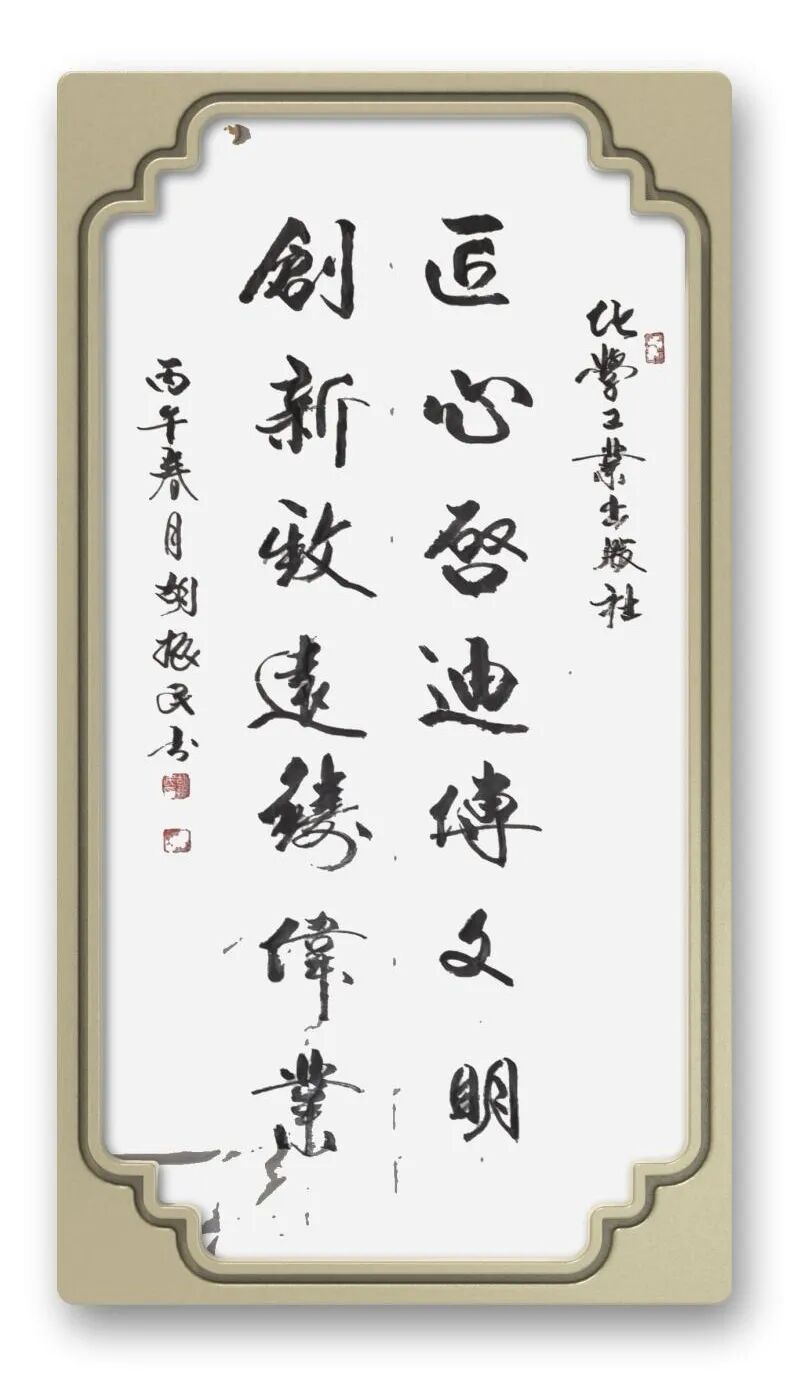 化學工業出版社
匠心啓迪傳文明
創新致遠鑄偉業
丙午春月胡振民书